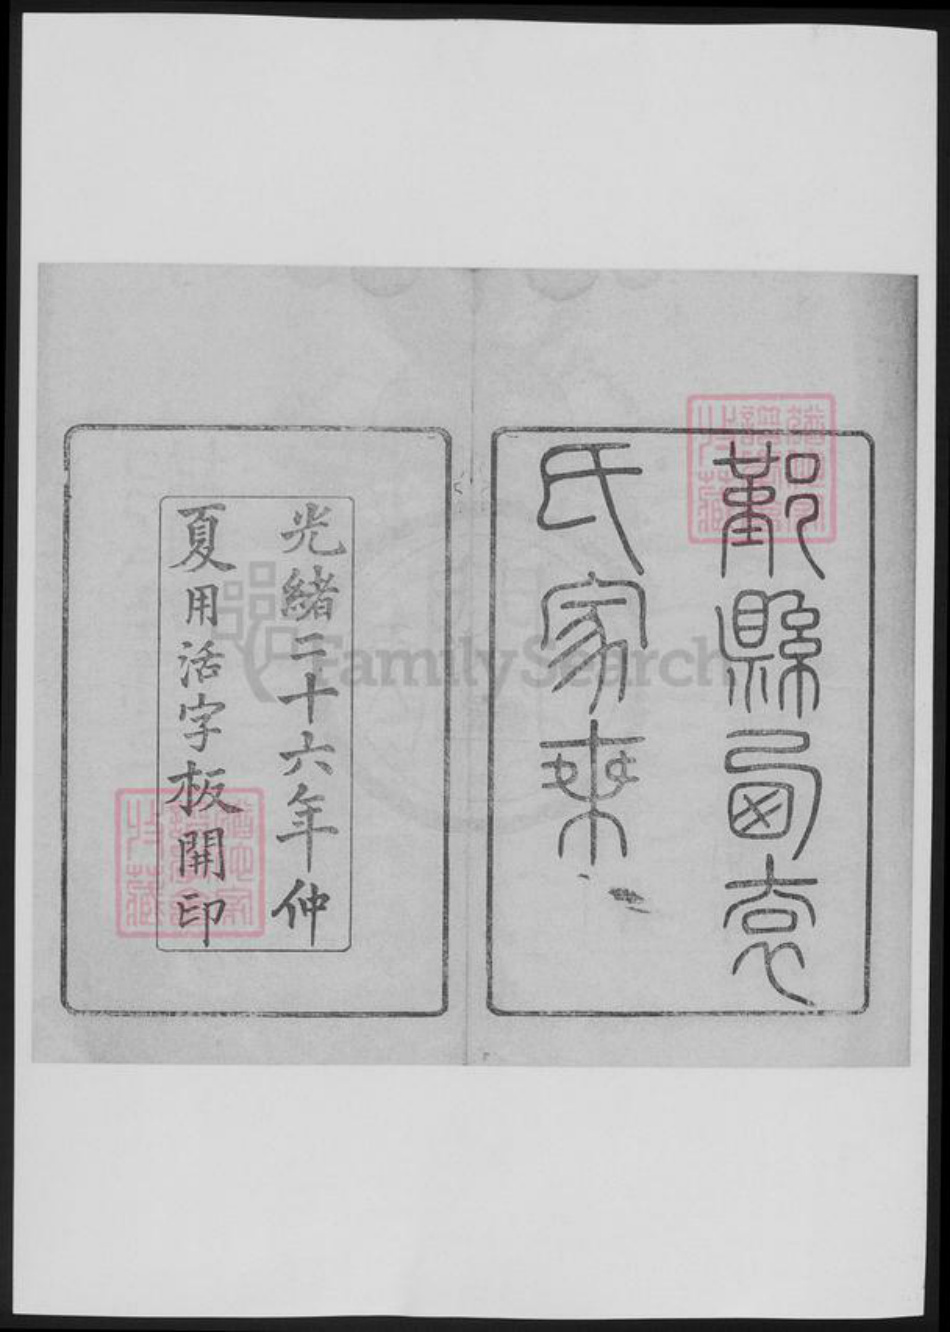 鄞縣西袁
氏家乘
光緒二十六年仲
夏用活字板開印
FamilySearch